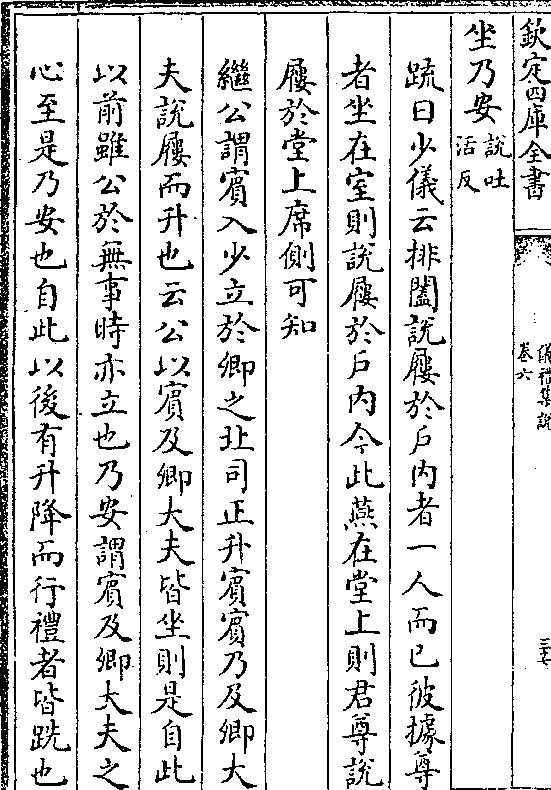 欽定四庫全書
儀禮集說
卷六
三七
坐乃安說吐
活反
疏曰少儀云排闔說屨於戶内者一人而已彼據尊
者坐在室則說屨於戶内今此燕在堂上則君尊說
屨於堂上席側可知
繼公謂賓入少立於卿之北司正升賓賓乃及卿大
夫說屨而升也云公以賓及卿大夫皆坐則是自此
以前雖公於無事時亦立也乃安謂賓及卿大夫之
心至是乃安也自此以後有升降而行禮者皆跣也